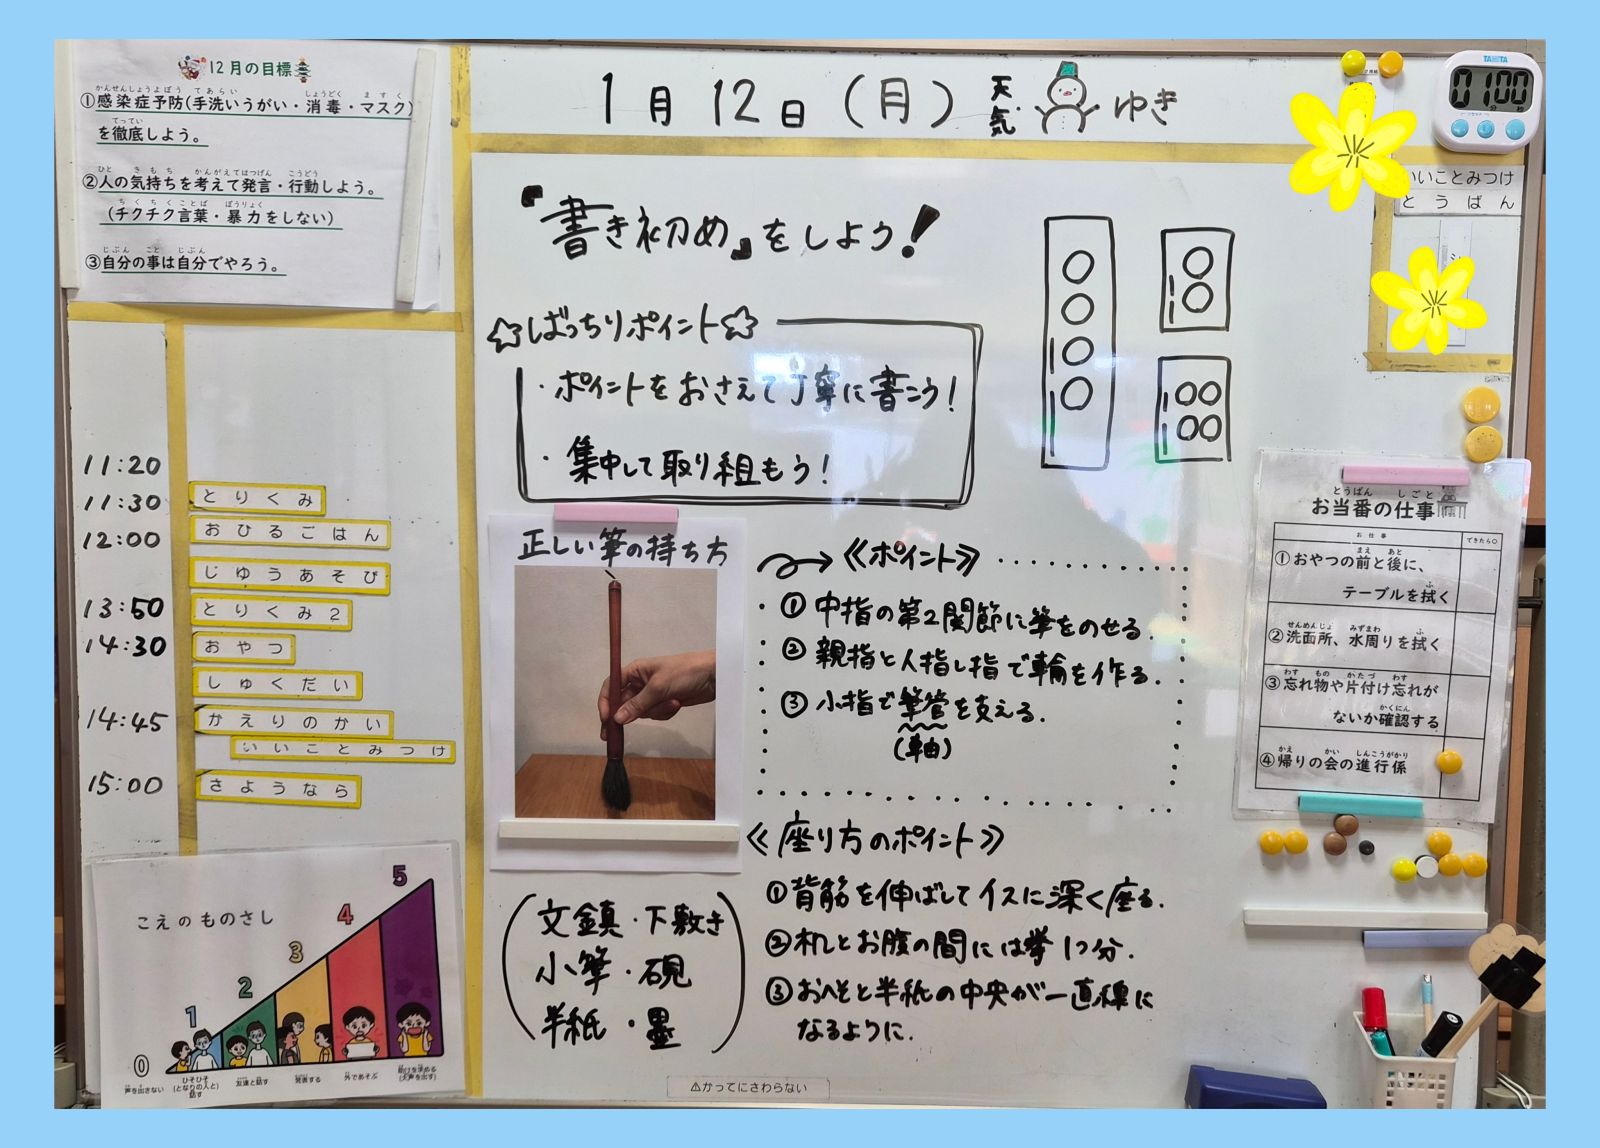 12月の目標
①感染症予防(手洗いうがい・消毒・マスク)
を徹底しよう。
②人の気持ちを考えて発言・行動しよう。
(チクチク言葉・暴力をしない)
③自分の事は自分でやろう。
1月12日(月) 天気 ゆき
TANITA
01 00
いいことみつけ
とうばん
『書き初め』をしよう!
☆ばっちりポイント☆
・ポイントをおさえて丁寧に書こう!
・集中して取り組もう!
11:20
11:30 とりくみ
12:00 おひるごはん
じゆうあそび
13:50 とりくみ2
14:30 おやつ
しゅくだい
14:45 かえりのかい
いいことみつけ
15:00 さようなら
正しい筆の持ち方
《ポイント》
① 中指の第2関節に筆をのせる.
② 親指と人指し指で輪を作る.
③ 小指で筆管を支える.
(軸)
《座り方のポイント》
①背筋を伸ばしてイスに深く座る.
②机とお腹の間には拳1つ分.
③おへそと半紙の中央が一直線に
なるように.
文鎮・下敷き
小筆・硯
半紙・墨
お当番の仕事
お仕事 できたら○
①おやつの前と後に、
テーブルを拭く
②洗面所、水周りを拭く
③忘れ物や片付け忘れが
ないか確認する
④帰りの会の進行係
こえのものさし
0 1 2 3 4 5
声を出さない
ひそひそ
(となりの人と)
話す
友達と話す
発表する
外であそぶ
助けを求める
(大声を出す)
⚠かってにさわらない